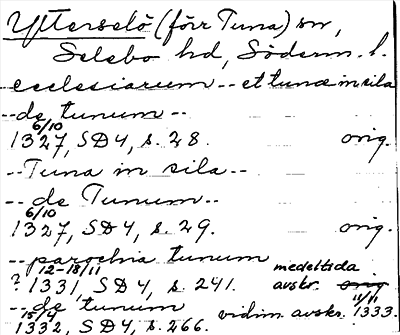 Ytterselö (förr Tuna) sn,
Selebo hd, Söderm. l.
ecclesiarum -- et tunæ in sila
-- de tunum --
6/10
1327, SD4, s. 28. orig.
-- Tuna in sila --
-- de Tunum --
6/10
1327, SD4, s. 29. orig.
-- parochia tunum
12-18/11 medeltida
? 1331, SD4, s. 241. avskr. orig.
-- de tunum 11/11
15/4 vidim. avskr. 1333.
1332, SD4, s. 266.